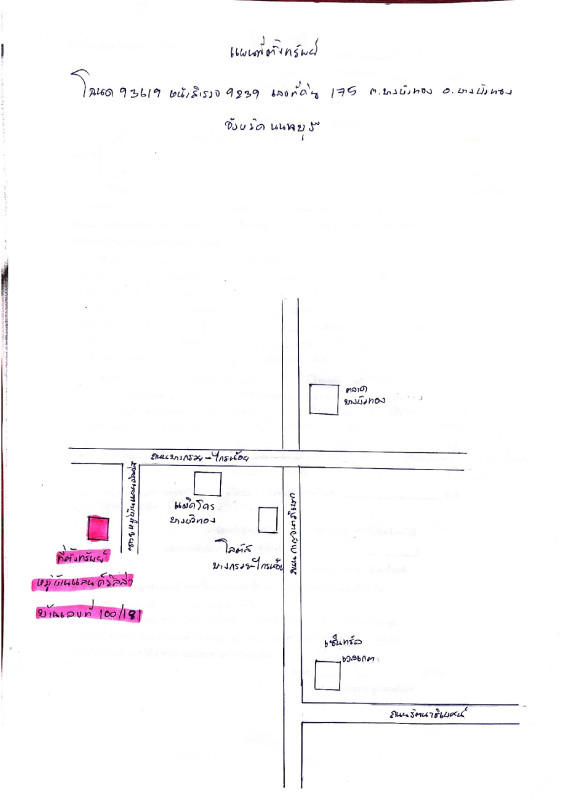 แผนที่ตั้งทรัพย์
โฉนด 93619 หน้าสำรวจ 9239 เลขที่ดิน 175 ต.บางบัวทอง อ.บางบัวทอง
จังหวัดนนทบุรี
ตลาด
บางบัวทอง
ถนนบางกรวย-ไทรน้อย
แม็คโคร
บางบัวทอง
โลตัส
บางกรวย-ไทรน้อย
ถนนกาญจนาภิเษก
ที่ตั้งทรัพย์
หมู่บ้านแลนด์วิลล่า
บ้านเลขที่ 100/181
เซ็นทรัล
เวสเกต
ถนนรัตนาธิเบศน์